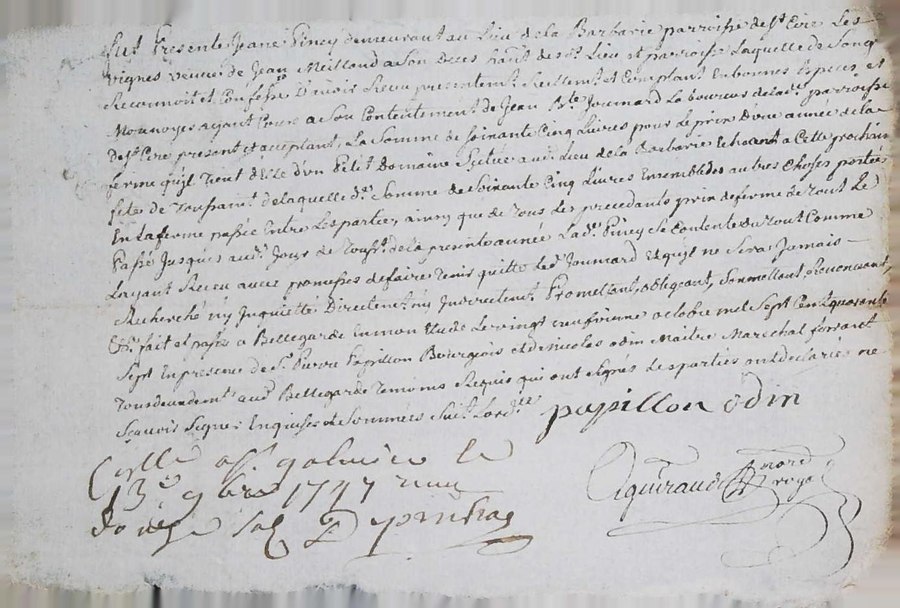 fut Presente Jeane Piney demeurant au Lieu de la Barbarie parroisse de St Cire Les
vignes veuve de Jean Meilland a Son Deces hab.t de sd. Lieu et parroisse Laquelle de Son gré
Reconnoit et Confesse Davoir Receu presentemt Reellemt et Comptant En bonnes Especes et
Monnoyes ayant Cours a Son Contentement de Jean Bte Joumard Laboureur de lad.e parroisse
De St Cire present et acceptant, La Somme de Soixante Cinq Livres pour Le prix Dune année de la
ferme quil Tient delle dun Petit Domaine Scitué aud. Lieu de la Barbarie Echeant a Cette prochaine
fete de Toussant de laquelle d.e Somme de Soixante Cinq Livres Ensemble des autres Choses portées
En la ferme passée Entre Les parties, ainsy que de Tous Les precedants prix de ferme de Tout Le
Passé Jusques aud. Jour de Touss.t de la presente année Lad.e Piney se Contente du Tout Comme
Layant Receu avec promesses de faire Tenir quitte Led. Joumard Et quil ne Sera Jamais
Recherché ny Inquietté Directemt ny Indirectemt Promettant, obligeant, Soumettant, Renonceant,
&c. fait et passé a Bellegarde En mon Etude Le vingt neufvieme octobre mil Sept Cent quarante
Sept En presence de Sr Pierre Papillon Bourgeois et de Nicolas odin Maitre Marechal ferrant
Tous deux demt aud. Bellegarde Temoins Requis qui ont Signés Les parties ont declarées ne
Sçavoir Signer Enquises et Sommées Suivt Lord.ce
papillon odin
Collé a St galmier le
13e 9bre 1747
Dix Sols
notr
royal